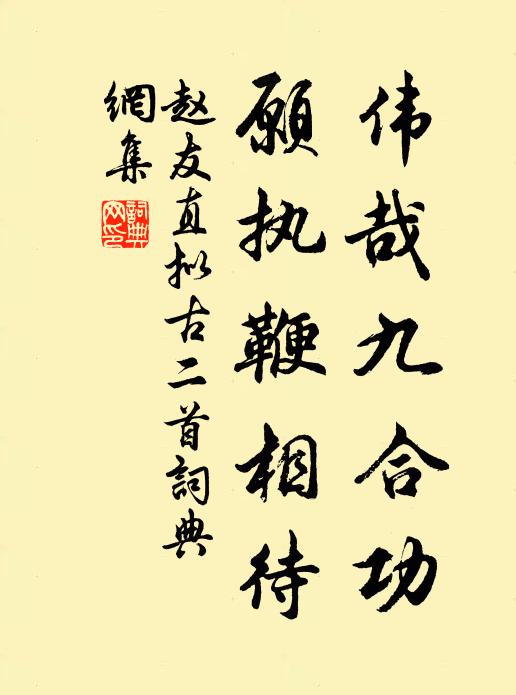 伟哉九合功
願执鞭相待
赵友直拟古二首詞典
網集
詞典
网印